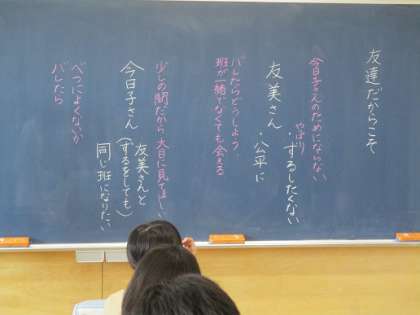 友達だからこそ
今日子さんのためにならない
やはり
・ずるしたくない
友美さん ・公平に
バレたらどうしよう
班が一緒でなくても会える
少しの間だから、大目に見てほしい
友美さんと
今日子さん(ずるをしても)
同じ班になりたい
べつによくないか
バレたら